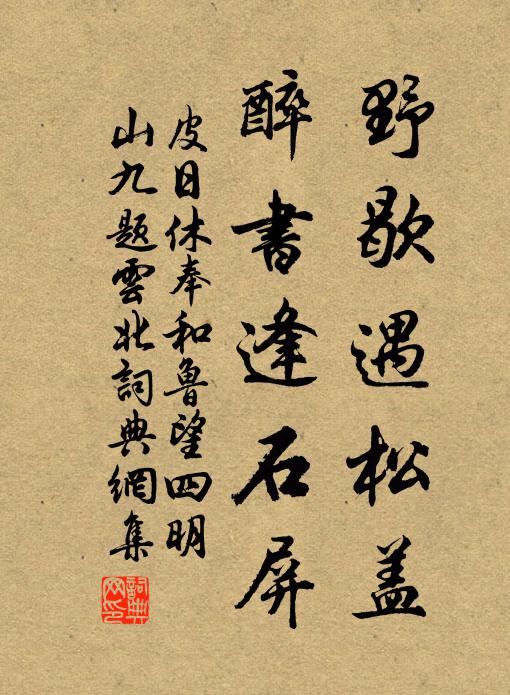 野歇遇松盖
醉書逢石屏
皮日休奉和魯望四明
山九題雲北詞典網集
詞典网印